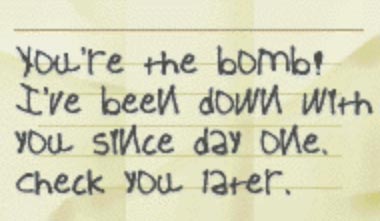 You're the bomb!
I've been down with
you since day one.
Check you later.